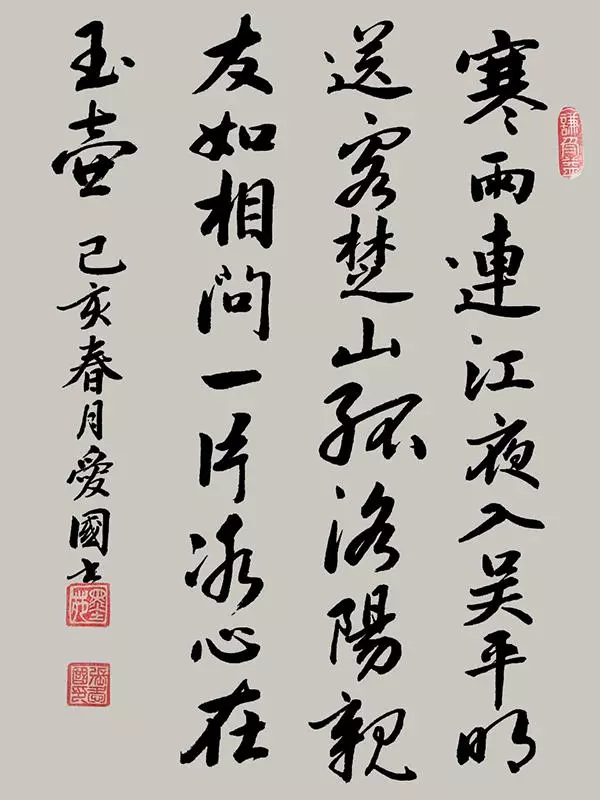 謙受益
寒雨連江夜入吴平明
送客楚山孤洛陽親
友如相問一片冰心在
玉壺
己亥春月愛國书